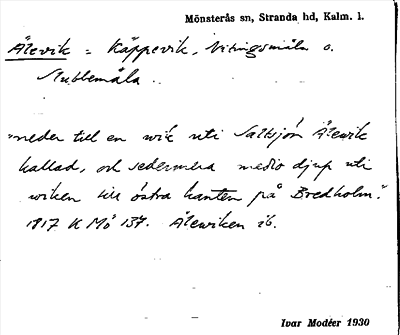 Mönsterås sn, Stranda hd, Kalm. l.
Ålevik = Käppevik, Vitingsmåla o.
Nubbemåla ..
"neder till en wik uti Saltsjön Ålewik
kallad, och sedermera medio djup uti
wiken till östra kanten på Bredholm."
1817 K Mö 137. Ålewiken ib.
Ivar Modéer 1930